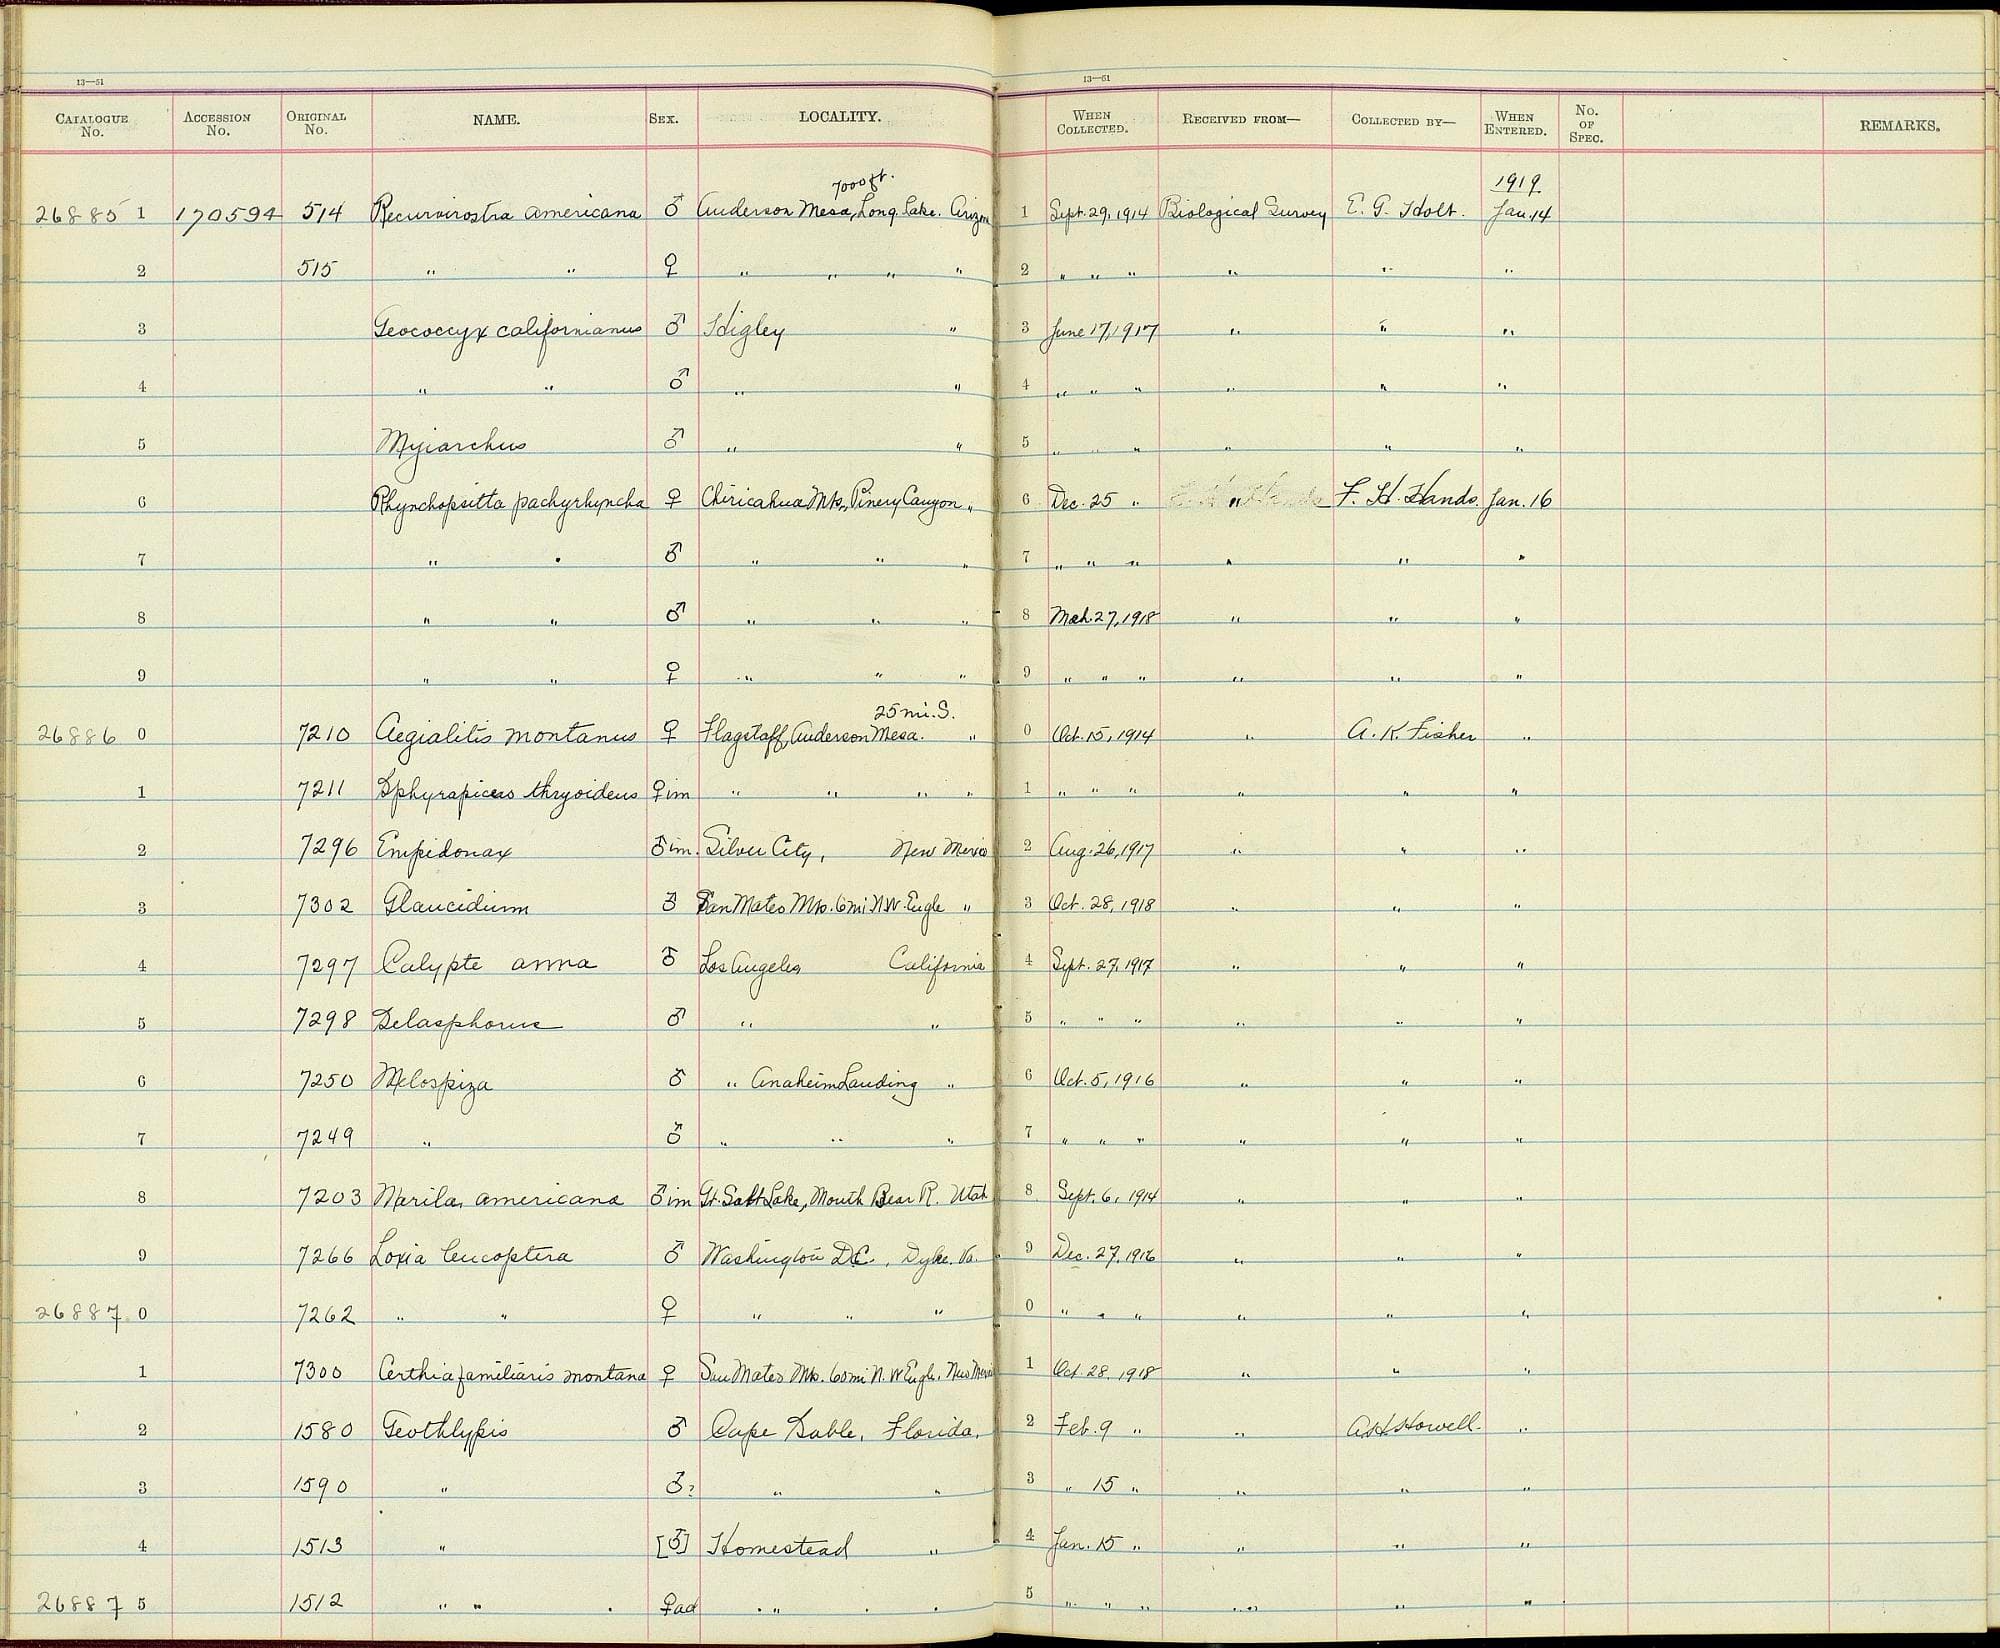 13—51 13—51
CATALOGUE No. ACCESSION No. ORIGINAL No. NAME. SEX. LOCALITY. WHEN COLLECTED. RECEIVED FROM— COLLECTED BY— WHEN ENTERED. No. OF SPEC. REMARKS.
7000 ft. 1919
26885 1 170594 514 Recurvirostra americana ♂ Anderson Mesa, Long Lake. Arizon 1 Sept. 29, 1914 Biological Survey E. G. Holt. Jan. 14
2 515 " " ♀ " " " " 2 " " " " " "
3 Geococcyx californianus ♂ Higley " 3 June 17, 1917 " " "
4 " " ♂ " " 4 " " " " " "
5 Myiarchus ♂ " " 5 " " " " " "
6 Rhynchopsitta pachyrhyncha ♀ Chiricahua Mts., Pinery Canyon " 6 Dec. 25 " " F. H. Hands. Jan. 16
7 " " ♂ " " " 7 " " " " " "
8 " " ♂ " " " 8 Mch. 27, 1918 " " "
9 " " ♀ " " " 9 " " " " " "
25 mi. S.
26886 0 7210 Aegialitis montanus ♀ Flagstaff, Anderson Mesa. " 0 Oct. 15, 1914 " A. K. Fisher "
1 7211 Sphyrapicus thryoideus ♀ im " " " " 1 " " " " " "
2 7296 Empidonax ♂ im. Silver City, New Mexico 2 Aug. 26, 1917 " " "
3 7302 Glaucidium ♂ San Mateo Mts. 6 mi N.W. Engle " 3 Oct. 28, 1918 " " "
4 7297 Calypte anna ♂ Los Angeles California 4 Sept. 27, 1917 " " "
5 7298 Selasphorus ♂ " " 5 " " " " " "
6 7250 Melospiza ♂ " Anaheim Landing " 6 Oct. 5, 1916 " " "
7 7249 " ♂ " " " 7 " " " " " "
8 7203 Marila americana ♂ im Gt. Salt Lake, Mouth Bear R. Utah 8 Sept. 6, 1914 " " "
9 7266 Loxia leucoptera ♂ Washington D.C., Dyke. Va. 9 Dec. 27, 1916 " " "
26887 0 7262 " " ♀ " " " 0 " " " " " "
1 7300 Certhia familiaris montana ♀ San Mateo Mts. 60 mi N. W Engle, New Mexi 1 Oct. 28, 1918 " " "
2 1580 Geothlypis ♂ Cape Sable, Florida. 2 Feb. 9 " " A H Howell. "
3 1590 " ♂? " " 3 " 15 " " " "
4 1513 " [♂] Homestead " 4 Jan. 15 " " " "
26887 5 1512 " " ♀ ad " " " 5 " " " " " "